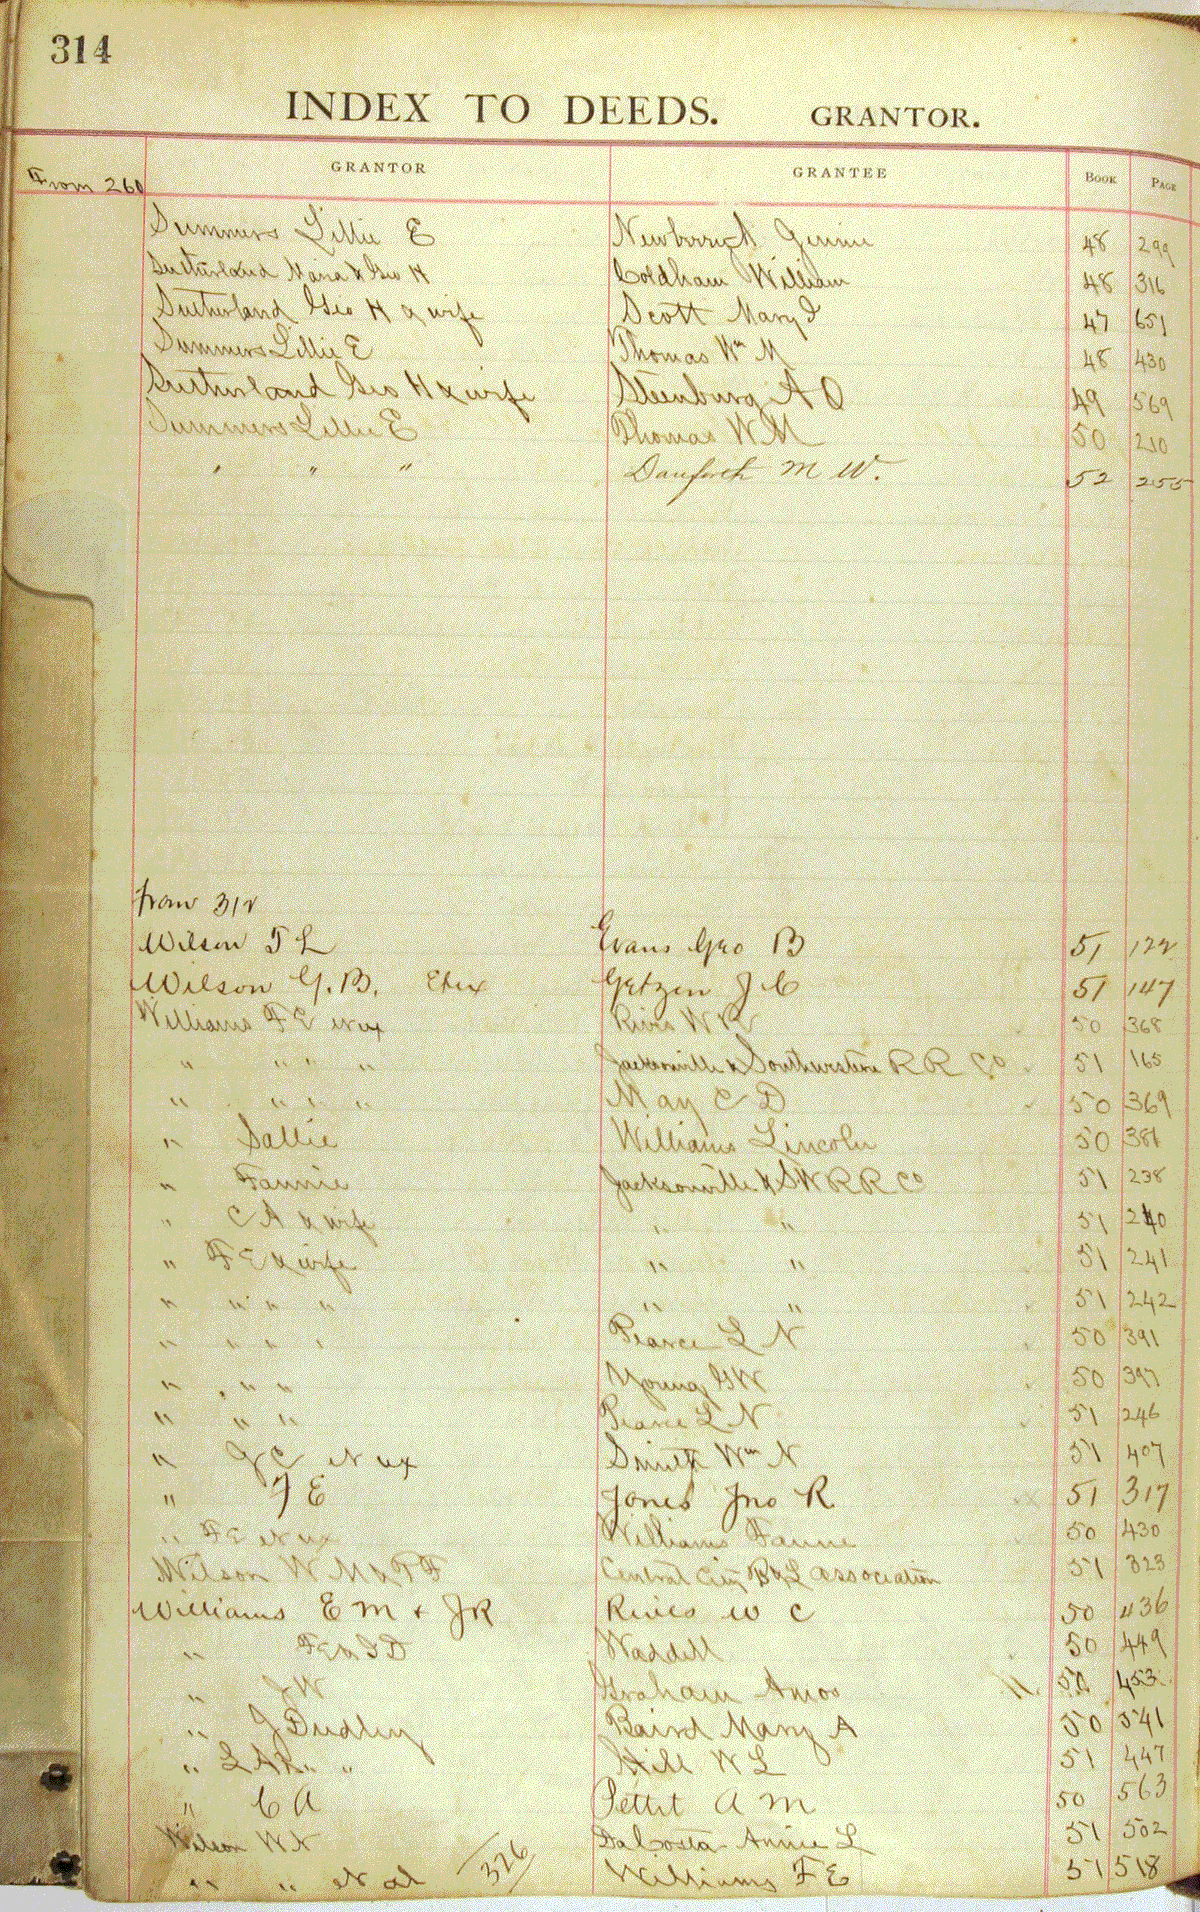 314
INDEX TO DEEDS. GRANTOR.
From 260 GRANTOR GRANTEE BOOK PAGE
Summers Lillie E 48 299
Sutherland Maria & Geo H Coldham William 48 316
Sutherland Geo H & wife Scott Mary I 47 651
Summers Lillie E Thomas Wm M 48 430
Sutherland Geo H & wife Steenburg A O 49 569
Summers Lillie E Thomas W M 50 210
" " " Danforth M W. 52 255
from 312
Wilson T L Evans Geo B 51 122
Wilson G. B. Etux Getzen J C 51 147
Williams F E et ux Rives W C 50 368
" " " " Jacksonville & Southwestern R R Co 51 165
" " " " May C D 50 369
" Sallie Williams Lincoln 50 381
" Fannie Jacksonville & S W R R Co 51 238
" C A & wife " " 51 240
" F E & wife " " 51 241
" " " " " " 51 242
" " " " Pearce L N 50 391
" " " " Young G W 50 397
" " " Pearce L N 51 246
" J C et ux Smith Wm N 51 407
" F E Jones Jno R 51 317
" F E et ux Williams Fannie 50 430
Wilson W M & F F Central City B & L association 51 323
Williams E M & J R Rives W C 50 436
" F E & I D Waddell 50 449
" J W Graham Amos 453
" J Dudley Baird Mary A 50 541
" " " Hill W L 51 447
" C A Pettit A M 50 563
Wilson W N DaCosta Annie L 51 502
" " et al 326 Williams F E 51 518